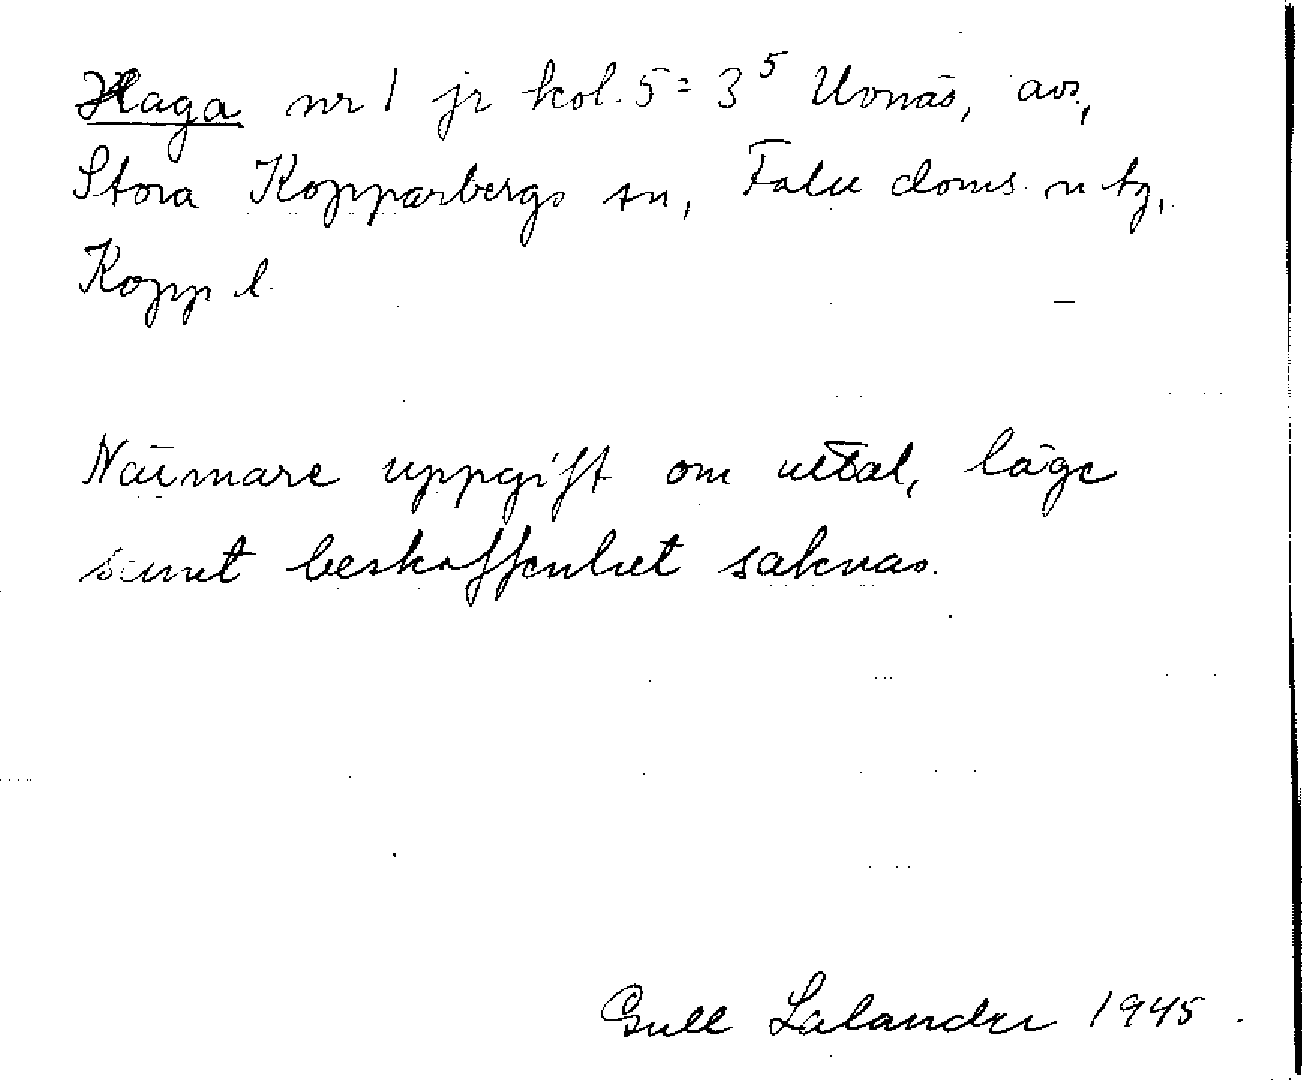 Haga nr 1 jr kol. 5 = 3⁵ Uvnäs, avs,
Stora Kopparbergs sn, Falu doms. o tg,
Kopp l.
Närmare uppgift om uttal, läge
samt beskaffenhet saknas.
Gull Lalander 1945.